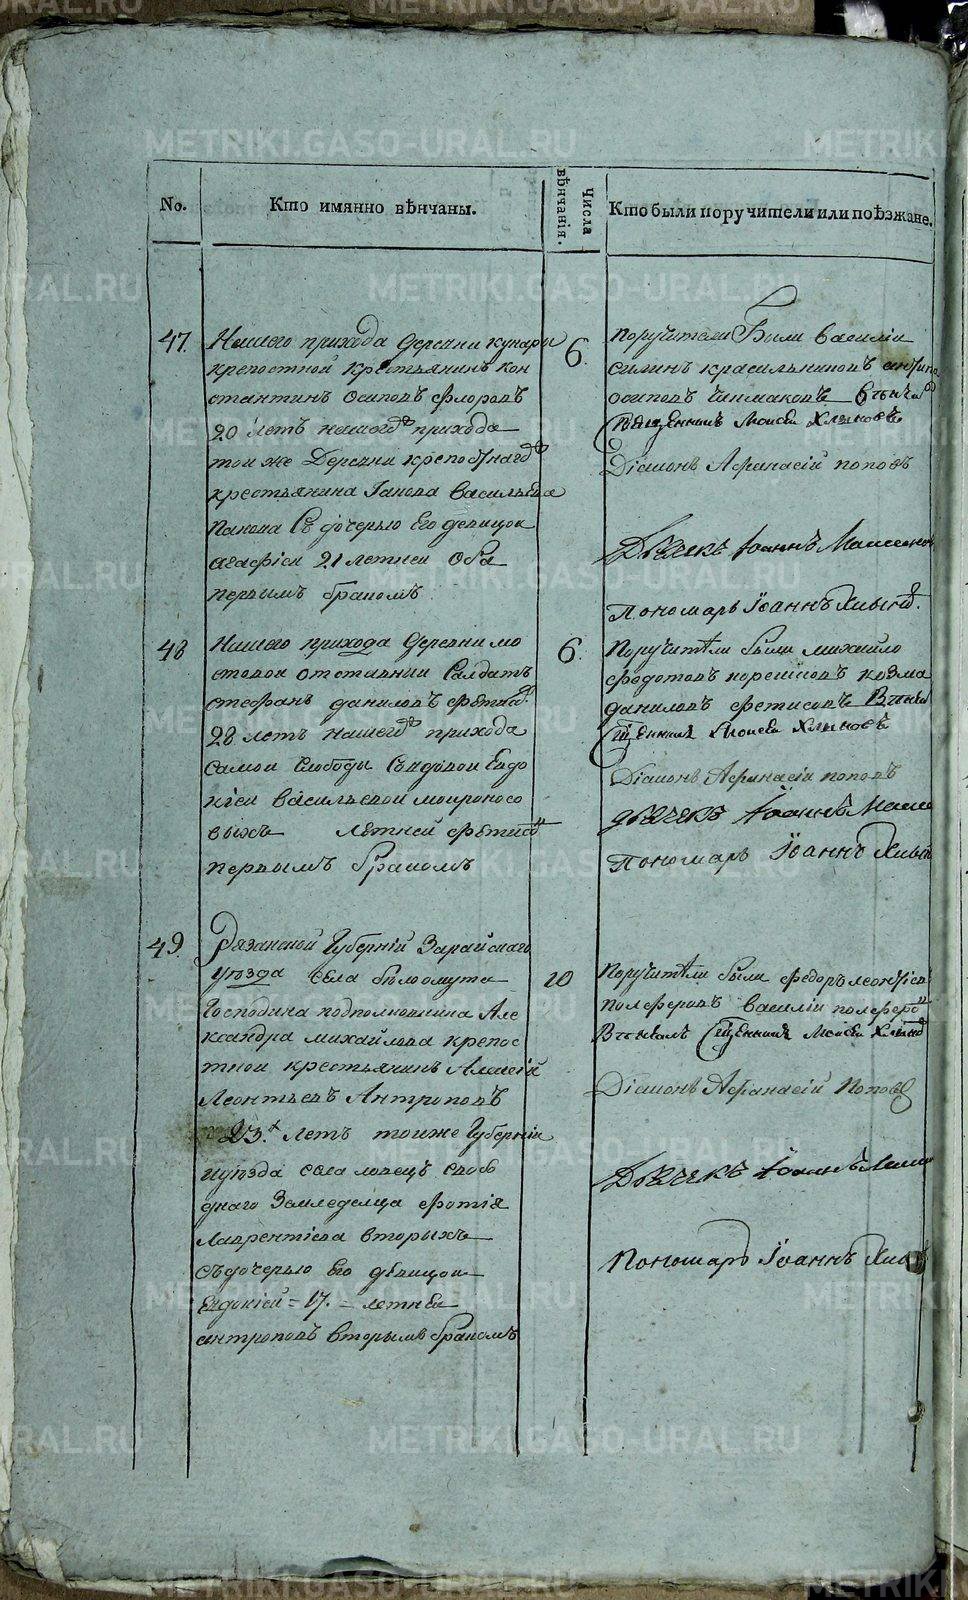 No.
Кто имянно вѣнчаны.
Числа вѣнчанія.
Кто были поручители или поѣзжане.
47.
Нашего прихода деревни кунары
крепостной крестьянинъ кон
стантинъ осиповъ флоровъ
20 летъ нашего прихода
тои же деревни крепостнаго
крестьянина Васильева
Панова Съ дочерью Его девицои
агафіеи 21 летнеи Оба
первымъ бракомъ
6.
Поручители были василіи
силинъ красильниковъ антипа
осиповъ
Священникъ Моисеи Хлыновъ
Діаконъ Афанасій поповъ
Дьячекъ Іоаннъ
Пономарь Іоаннъ
48
Нашего прихода деревни мо
стовои отставнии Салдатъ
стефанъ даниловъ
28 летъ нашего прихода
самои слободы Съ вдовои Евдо
кіеи васильевои мокроносо
выхъ летней
первымъ бракомъ
6.
Поручители были михаило
федотовъ козма
даниловъ фетисовъ
Священникъ Моисеи Хлыновъ
Діаконъ Афанасіи поповъ
дьячекъ Іоаннъ
Пономарь Іоаннъ
49.
Рязанской Губерній Зарайскаго
уѣзда села бѣлоомута
Господина подполковника Але
ксандра михайлова крепос
тнои крестьянинъ Алексій
Леонтьевъ Антроповъ
23.х летъ тоиже Губерніи
иуѣзда села ловецъ своб
днаго Земледелца фотія
Лаврентіева вторыхъ
Съдочерью Его дѣвицои
Евдокіей = 17. = летнеи
антроповъ вторымъ бракомъ
10
Поручители были федоръ леонтіевъ
василіи
Священникъ Моисеи
Діаконъ Афанасій Поповъ
Дьячекъ Іоаннъ
Пономарь Іоаннъ
METRIKI.GASO-URAL.RU